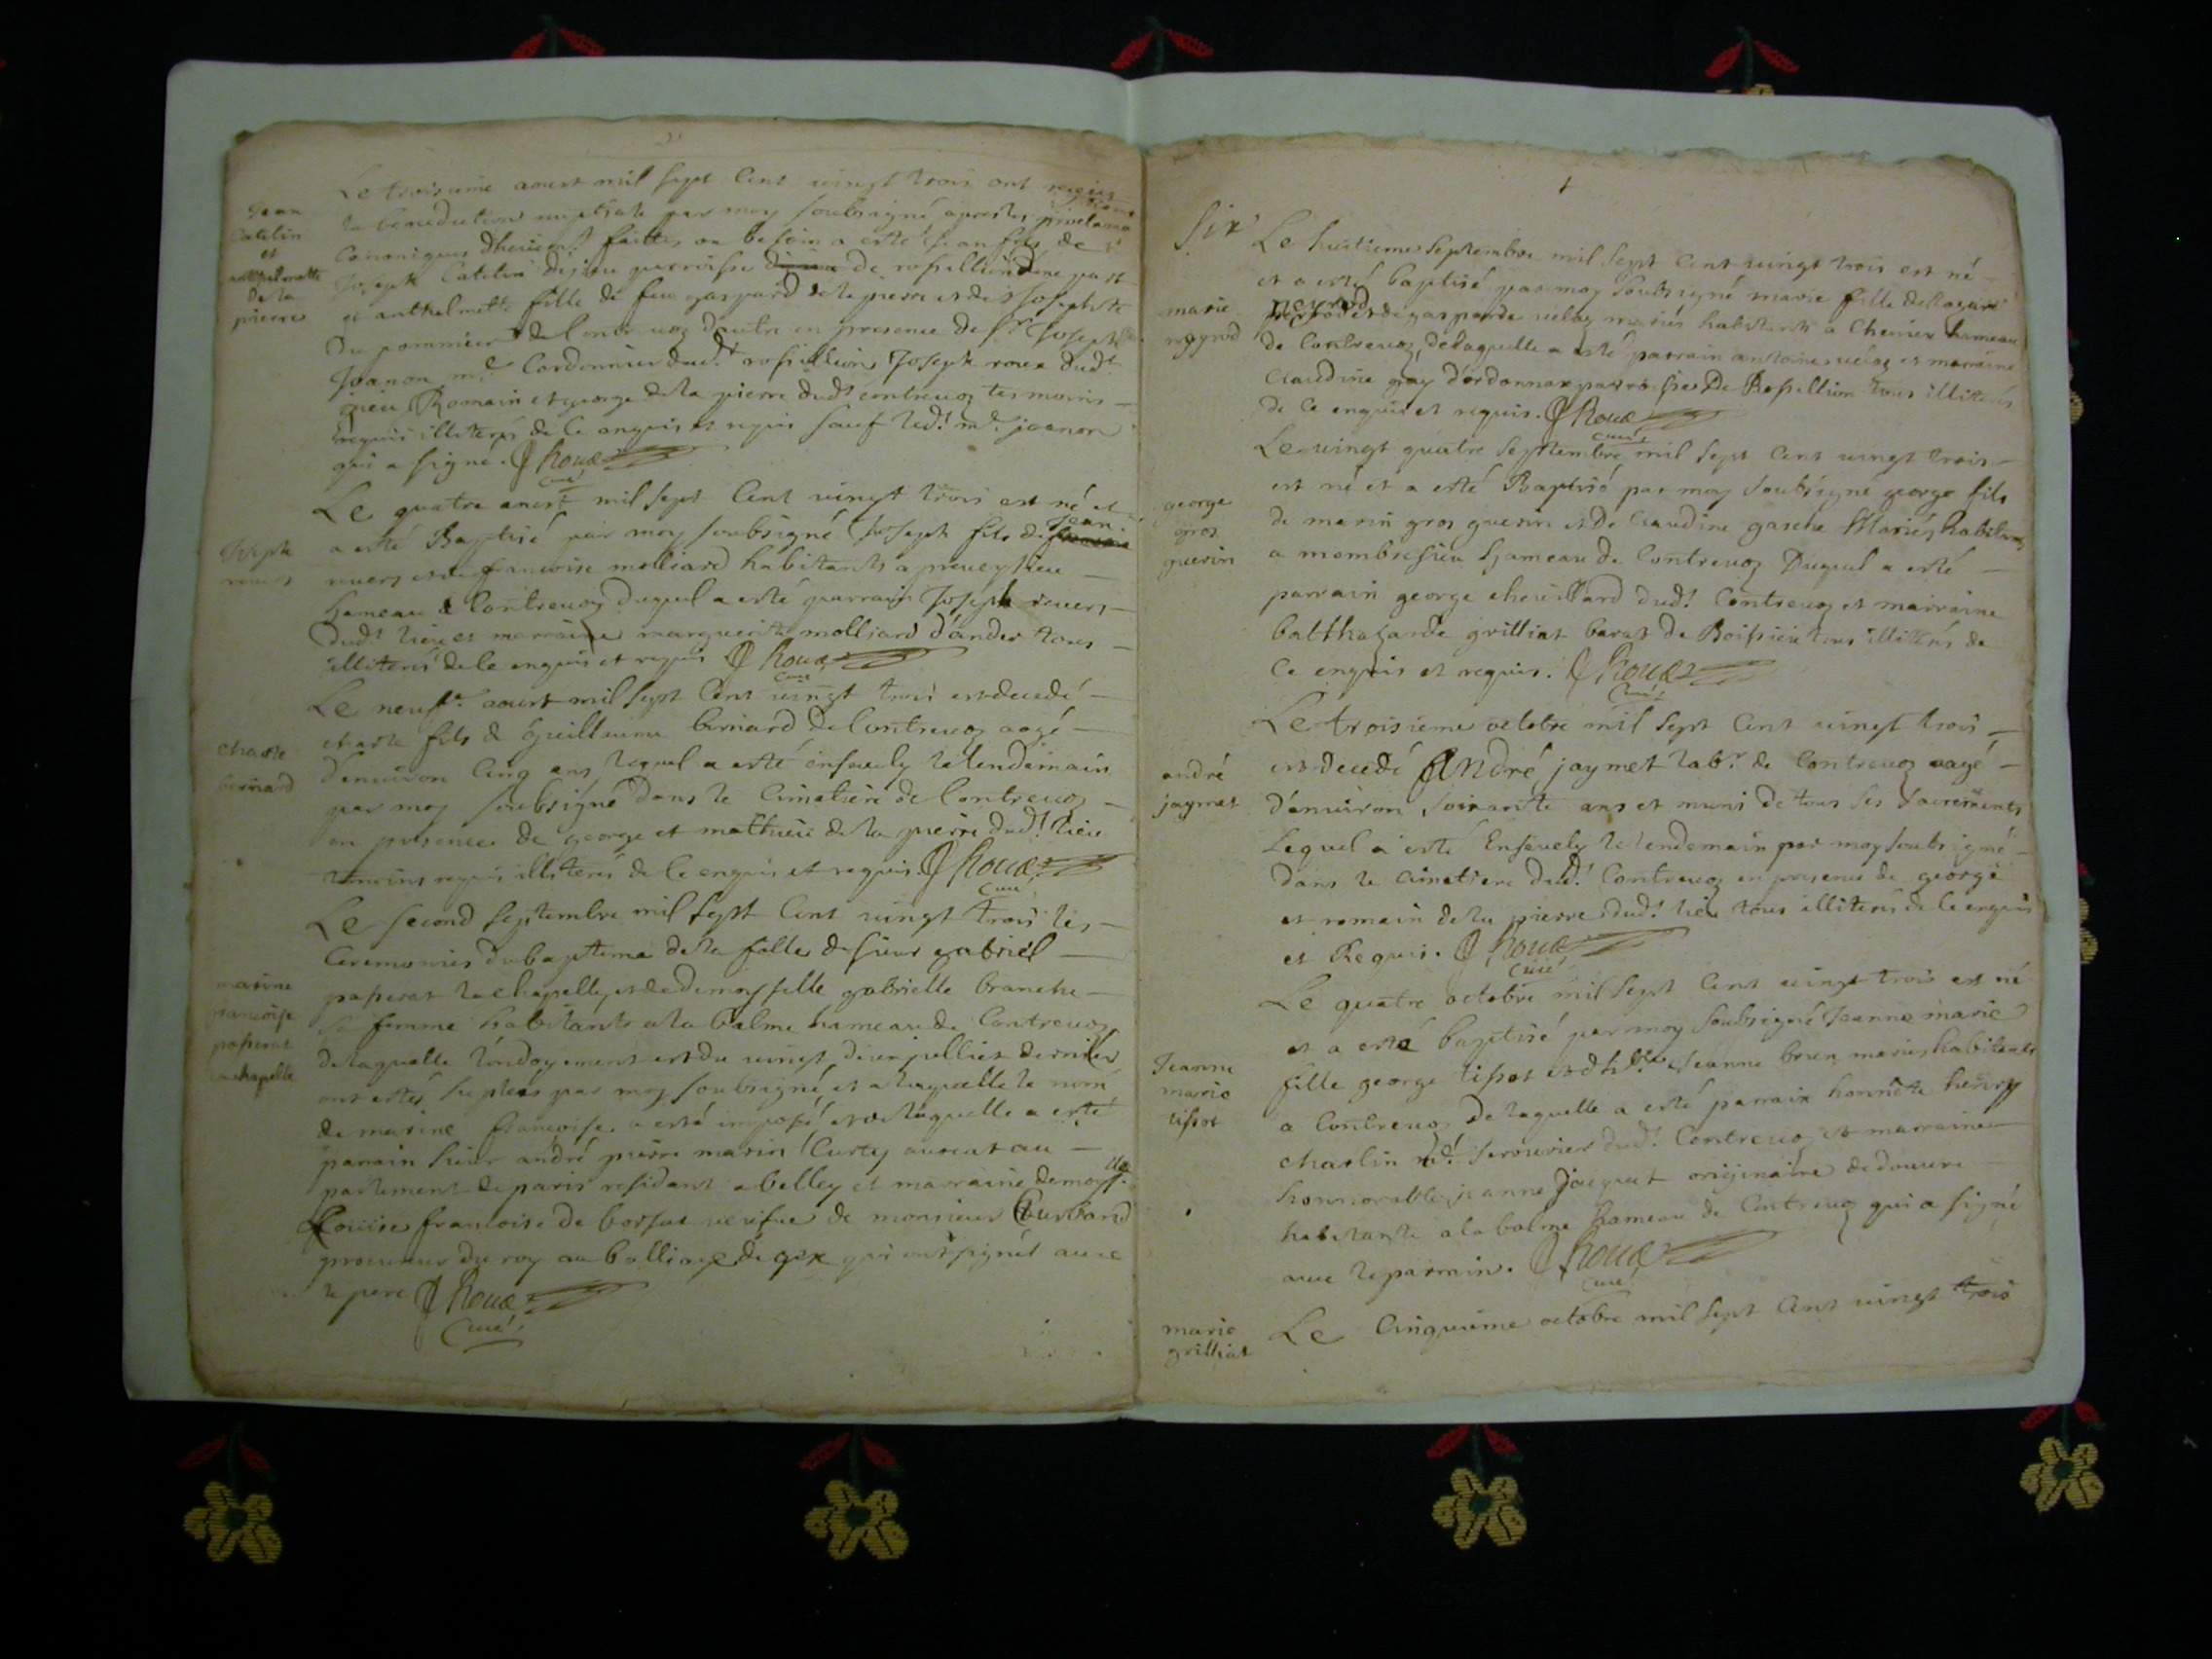 Jean
Catelin
et
anthelmette
de la
pierre
Le troisieme aoust mil sept cent vingt trois ont reçeus
la benediction nuptiale par moy soubsigné apres les proclama
tions
Canoniques dheuem.t faittes ou besoin a esté jean fils de
Joseph Catelin d'ijeu parroisse de rossillion d'une part
et anthelmette fille de feu gaspard de la pierre et de josephte
du pommier de Contreuoz dautre en presence de s.r Joseph
Joanon m.e Cordonnier dud.t rossillion, Joseph roux dud.t
ijieu, Romain et george de la pierre dud.t contreuoz tesmoins
requis illiterés de ce enquis et requis sauf led.t m.e joanon
qui a signé. Roux
Curé
Joseph
Le quatre aoust mil sept Cent vingt trois est né et
a esté Baptisé par moy soubsigné Joseph fils de Jean
et de francoise molliard habitants a preveyzieu
hameau de Contreuoz duquel a esté parrain Joseph
dud.t lieu et marraine marguerite molliard d'andert tous
illiterés de ce enquis et requis Roux
Curé
charle
bernard
Le neuf.e aoust mil sept Cent vingt trois est decedé
charle fils de guillaume bernard de Contreuoz aagé
d'enuiron Cinq ans lequel a esté enseuely le lendemain
par moy soubsigné dans le Cimetiere de Contreuoz
en presence de george et mathieu de la pierre dud.t lieu
temoins requis illiterés de ce enquis et requis. Roux
Curé
marine
francoise
passerat
la chapelle
Le second septembre mil sept Cent vingt trois les
Ceremonies du baptême de la fille de sieur gabriel
passerat la Chapelle, et de demoysselle gabrielle branche
sa femme habitants a la balme hameau de Contreuoz
de laquelle l'ondoyement est du vingt deux julliet dernier
ont estés supleés par moy soubsigné, et a laquelle le nom
de marine francoise a esté imposé et de laquelle a esté
parrain sieur andré pierre marin Curty auocat au
parlement de paris residant a belley et marraine demoys.lle
Louise francoise de bossut de monsieur
procureur du roy au balliage de gex qui ont signés auec
le pere Roux
Curé
six
marie
neyrod
Le huitieme septembre mil sept Cent vingt trois est né
et a esté baptisé par moy soubsigné marie fille de lazare
neyrod et de gasparde velaz mariés habitants a Cheurier hameau
de Contreuoz, de laquelle a esté parrain antoine velaz et marraine
Claudine gay d'ordonnax parroisse De Rossillion tous illiterés
de ce enquis et requis. Roux
Curé
george
gros
guerin
Le vingt quatre septembre mil sept Cent vingt trois
est né et a esté Baptisé par moy soubsigné george fils
de marin gros guerin et de Claudine gasche Mariés habitans
a membresieu hameau de Contreuoz Duquel a esté
parrain george cheuillard dud.t Contreuoz et marraine
balthazarde grilliat barat de Boissieu tous illiterés de
ce enquis et requis. Roux
Curé
andré
jaymet
Le troisieme octobre mil sept Cent vingt trois
est decedé André jaymet lab.r de Contreuoz aagé
d'enuiron soixante ans et muni de tous ses sacrements
Lequel a esté Enseuely le lendemain par moy soubsigné
dans le cimetiere dud.t Contreuoz en presence de george
et romain de la pierre dud.t lieu tous illiterés de ce enquis
et Requis. Roux
Curé
Jeanne
marie
tissot
Le quatre octobre mil sept Cent vingt trois est né
et a esté baptisé par moy soubsigné Jeanne marie
fille george tissot et d'h.ble Jeanne brun mariés habitants
a Contreuoz De laquelle a esté parrain honnête henry
charlin m.e serrurier dud.t Contreuoz et marraine
honnorable jeanne Jacquet originaire de douure
habitante a la balme hameau de Contreuoz qui a signé
auec le parrain. Roux
Curé
marie
grilliat
Le Cinquieme octobre mil sept Cent vingt trois